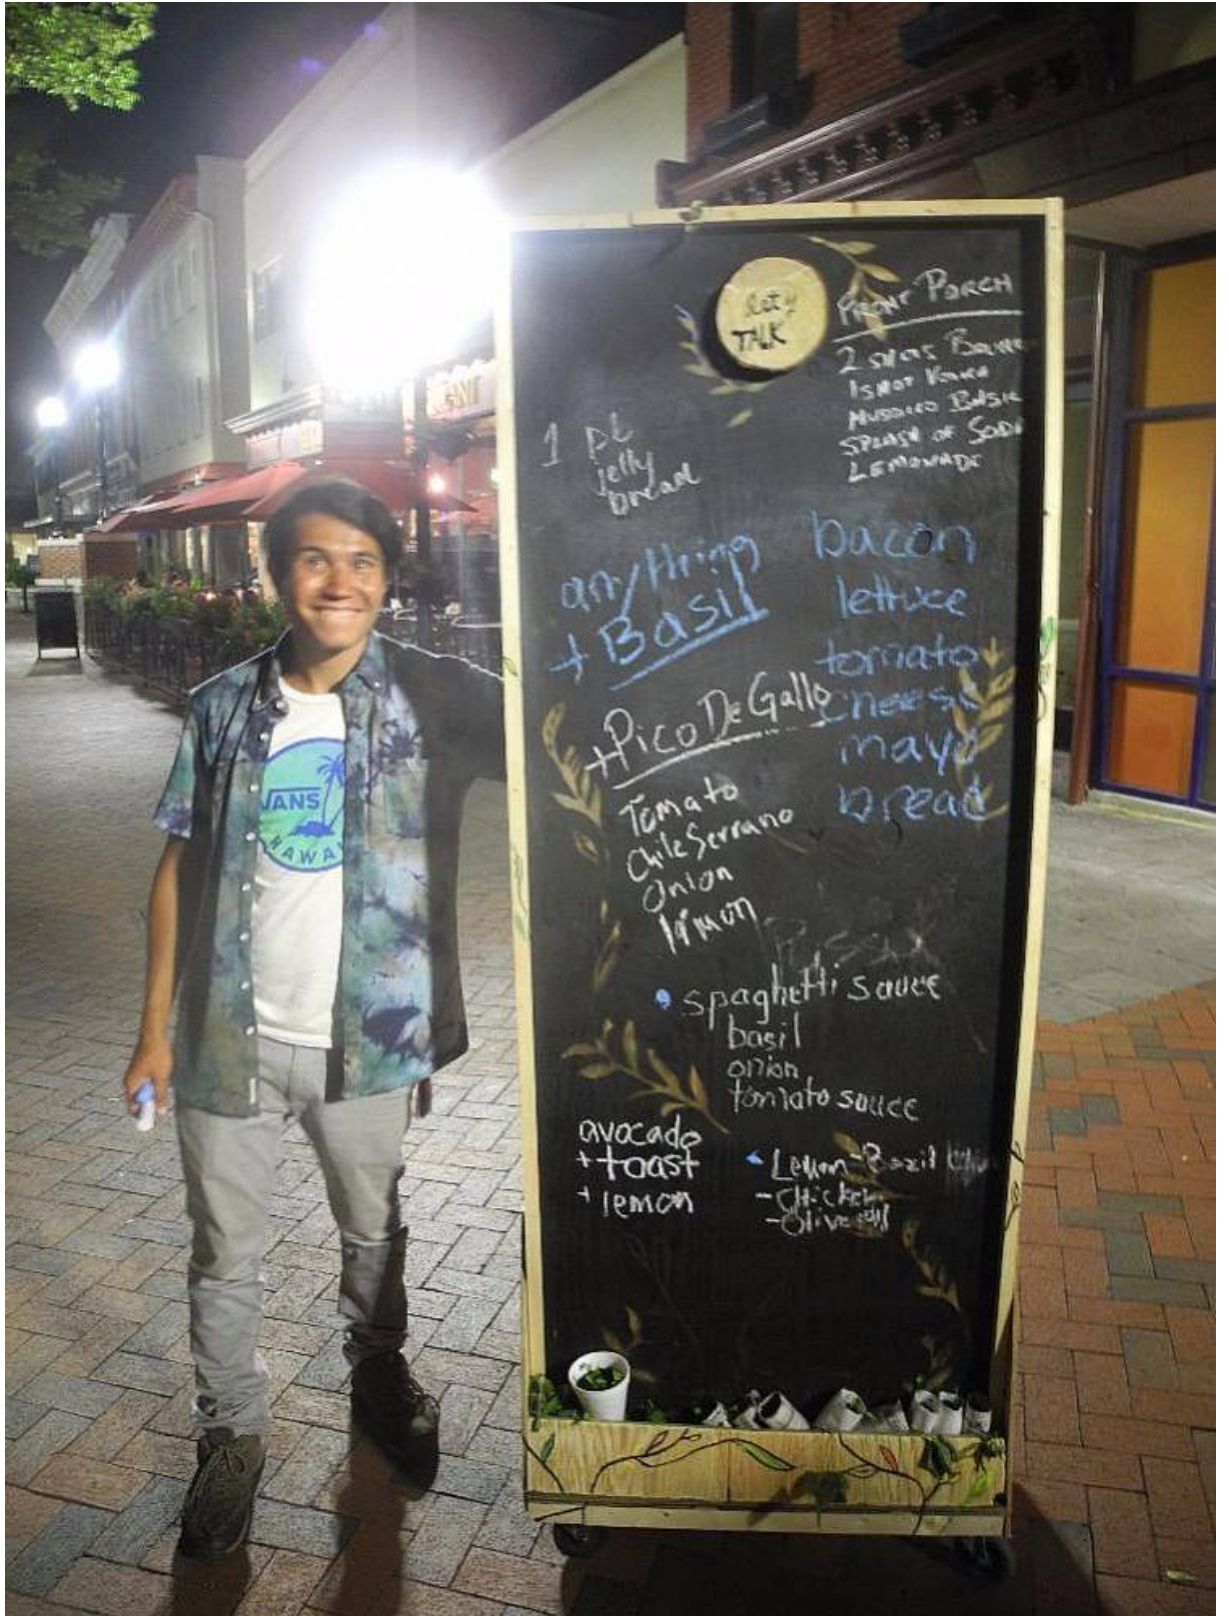 TALK
FRONT PORCH
2 SHOTS
1 SHOT VODKA
MUDDLED BASIL
SPLASH OF SODA
LEMONADE
1 pb
jelly
bread
anything
+ Basil
bacon
lettuce
tomato
cheese
mayo
bread
+ Pico De Gallo
Tomato
Chile Serrano
Onion
limon
• spaghetti sauce
basil
onion
tomato sauce
avocado
+ toast
+ lemon
Lemon-Bazil
- Chicken
- Olive oil
VANS
HAWAI